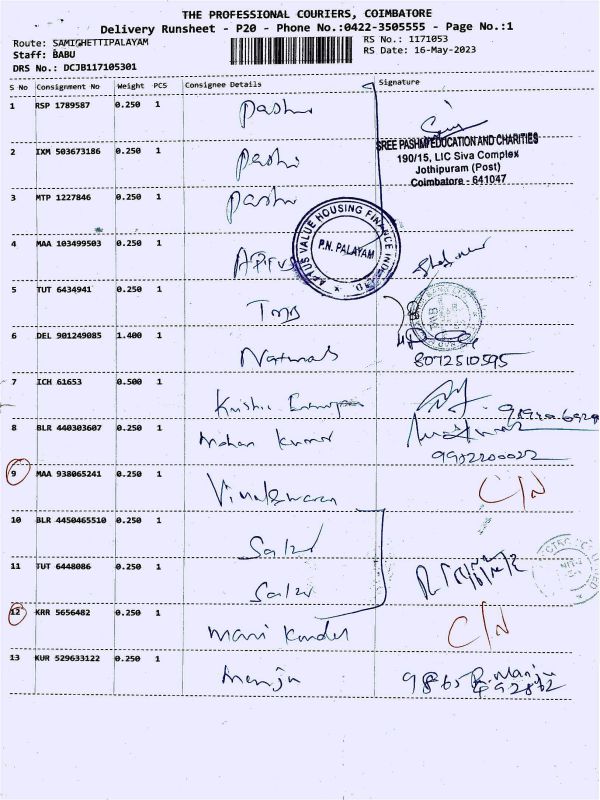 THE PROFESSIONAL COURIERS, COIMBATORE
Delivery Runsheet - P20 - Phone No.:0422-3505555 - Page No.:1
Route: SAMICHETTIPALAYAM
RS No.: 1171053
Staff: BABU
RS Date: 16-May-2023
DRS No.: DCJB117105301
S No Consignment No Weight PCS Consignee Details Signature
1 RSP 1789587 0.250 1 Pashmi
SREE PASHMI EDUCATION AND CHARITIES
190/15, LIC Siva Complex
Jothipuram (Post)
Coimbatore - 641047
2 IXM 503673186 0.250 1 Pashmi
3 MTP 1227846 0.250 1 Pashmi
APTUS VALUE HOUSING FINANCE INDIA LTD.
P.N. PALAYAM
4 MAA 103499503 0.250 1 Aptus
5 TUT 6434941 0.250 1 TMB
6 DEL 901249085 1.400 1 Naturals
8072510595
7 ICH 61653 0.500 1
8 BLR 440303607 0.250 1 Mohan Kumar
9902200022
9 MAA 938065241 0.250 1 Vimaleswaran C/N
10 BLR 4450465510 0.250 1
11 TUT 6448086 0.250 1
12 KRR 5656482 0.250 1 Mani Kandan C/N
13 KUR 529633122 0.250 1 Manju
R. Manju